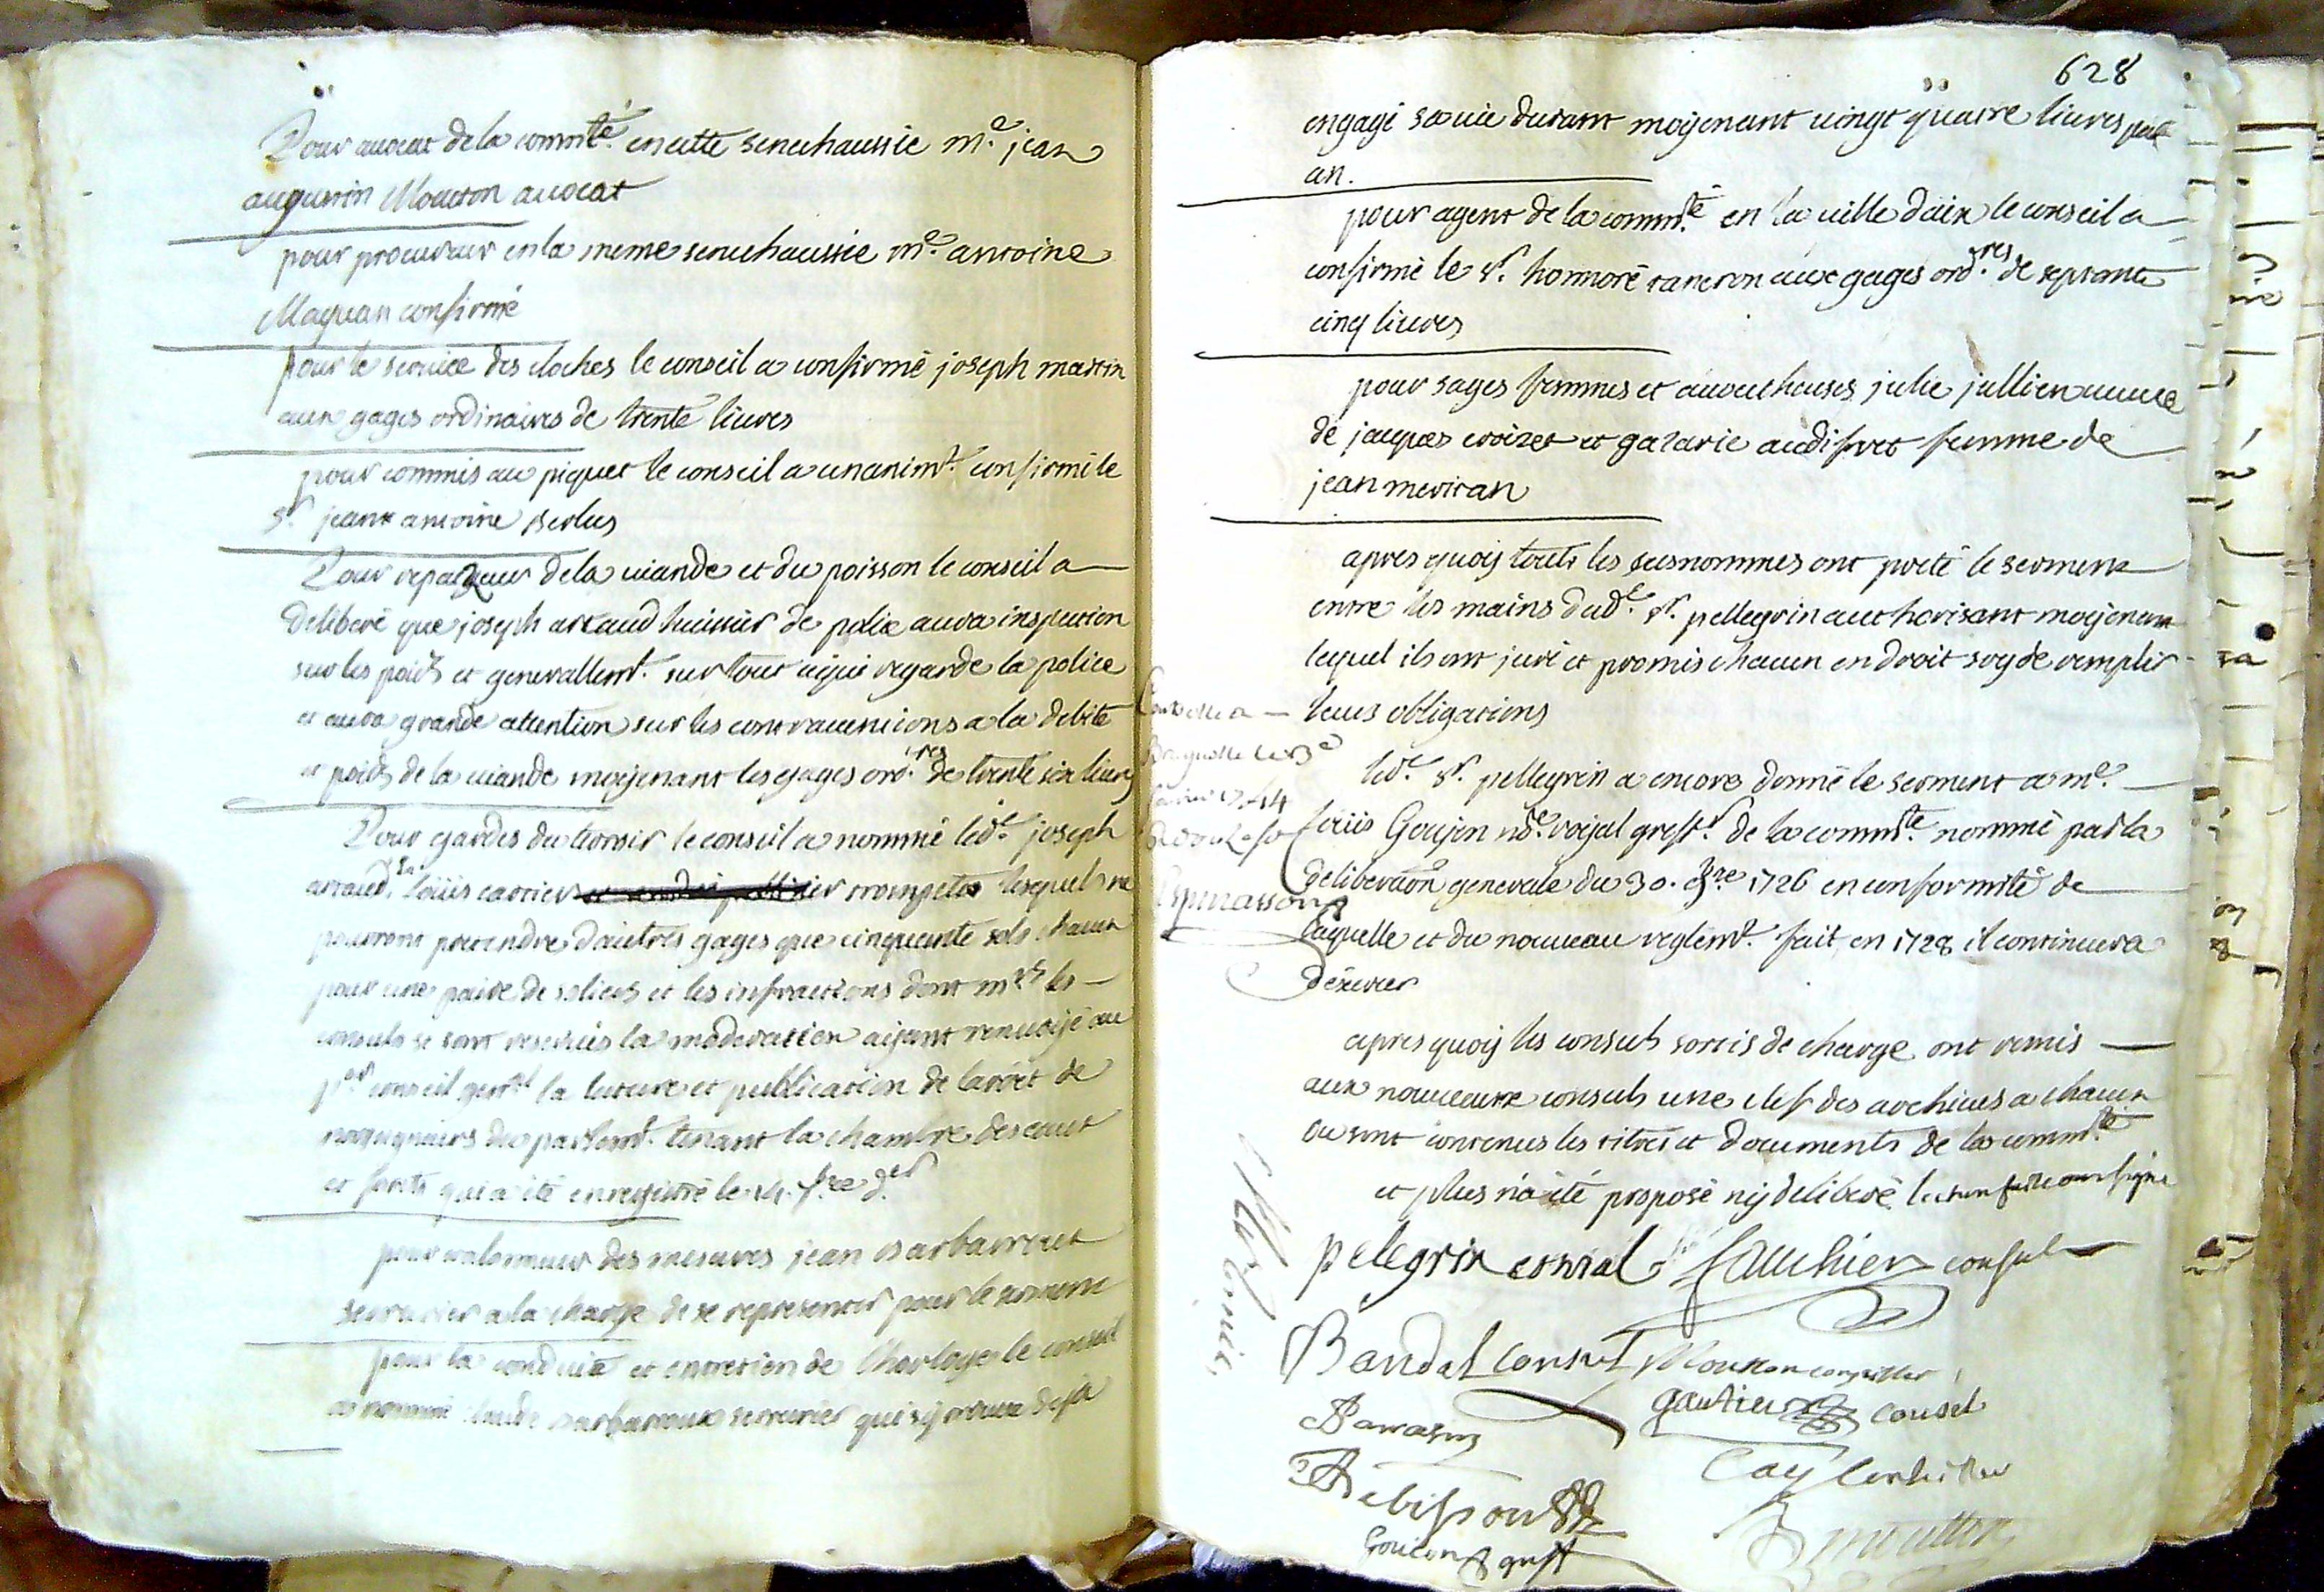 Pour avocat de la comm.té en cette senechaussée m.e jean
augustin Mouton avocat
pour procureur en la meme senechaussée m.e antoine
Maquan confirmé
pour le service des cloches le conseil a confirmé joseph martin
aux gages ordinaires de trente livres
pour commis au piquet le conseil a unanim.t confirmé le
s.r jean antoine
Pour de la viande et du poisson le conseil a
deliberé que joseph artaud huissier de police aura inspection
sur les poids et generallem.t sur tout ce qui regarde la police
et aura grande attention sur les contravenions a la debite
et poids de la viande moyenant les gages ord.res de trente six livres
Pour gardes du terroir le conseil a nommé led.t joseph
artaud, Louis cartier trompetes lesquels ne
pourront pretendre d'autres gages que cinquante sols chacun
pour une paire de soliers et les infractions dont m.rs les
consuls se sont reservés la moderation ayant renvoyé au
p.er conseil gen.al la lecture et publication de l'arret de
nosseigneurs du parlem.t tenant la chambre des eaux
et forets qui a été enregistré le 14. d.er
pour des mesures jean barbarroux
serrurier a la charge de se representer pour le serment
pour la conduite et entretien de l'horloge le conseil
a nommé claude barbarroux serrurier qui s'y trouve deja
628
engagé sa vie durant moyenant vingt quatre livres par
an.
pour agent de la comm.té en la ville d'aix le conseil a
confirmé le s.r honnoré aux gages ord.res de septante
cinq livres
pour sages femmes et accoucheuses julie jullien veuve
de jacques croizet et audifret femme de
jean merican
apres quoy touts les susnommes ont preté le serment
entre les mains dud.t s.r pellegrin authorisant moyenant
lequel ils ont juré et promis chacun en droit soy de remplir
leurs obligations
led.t s.r pellegrin a encore donné le serment a m.e
louis Goujon n.re royal greff.r de la comm.té nommé par la
deliberaon generale du 30. 1726 en conformité de
laquelle et du nouveau reglem.t fait en 1728 il continuera
d'exercer
apres quoy les consuls sortis de charge ont remis
aux nouveaux consuls une clef des archives a chacun
ou sont contenus les titres et documents de la comm.té
et plus n'a été proposé ny deliberé lecture faite ont signé
pelegrin consul fauchier consul
Baudel consul Mouton conseiller
gautier consel
conseiller
Rebissou
Goujon greff